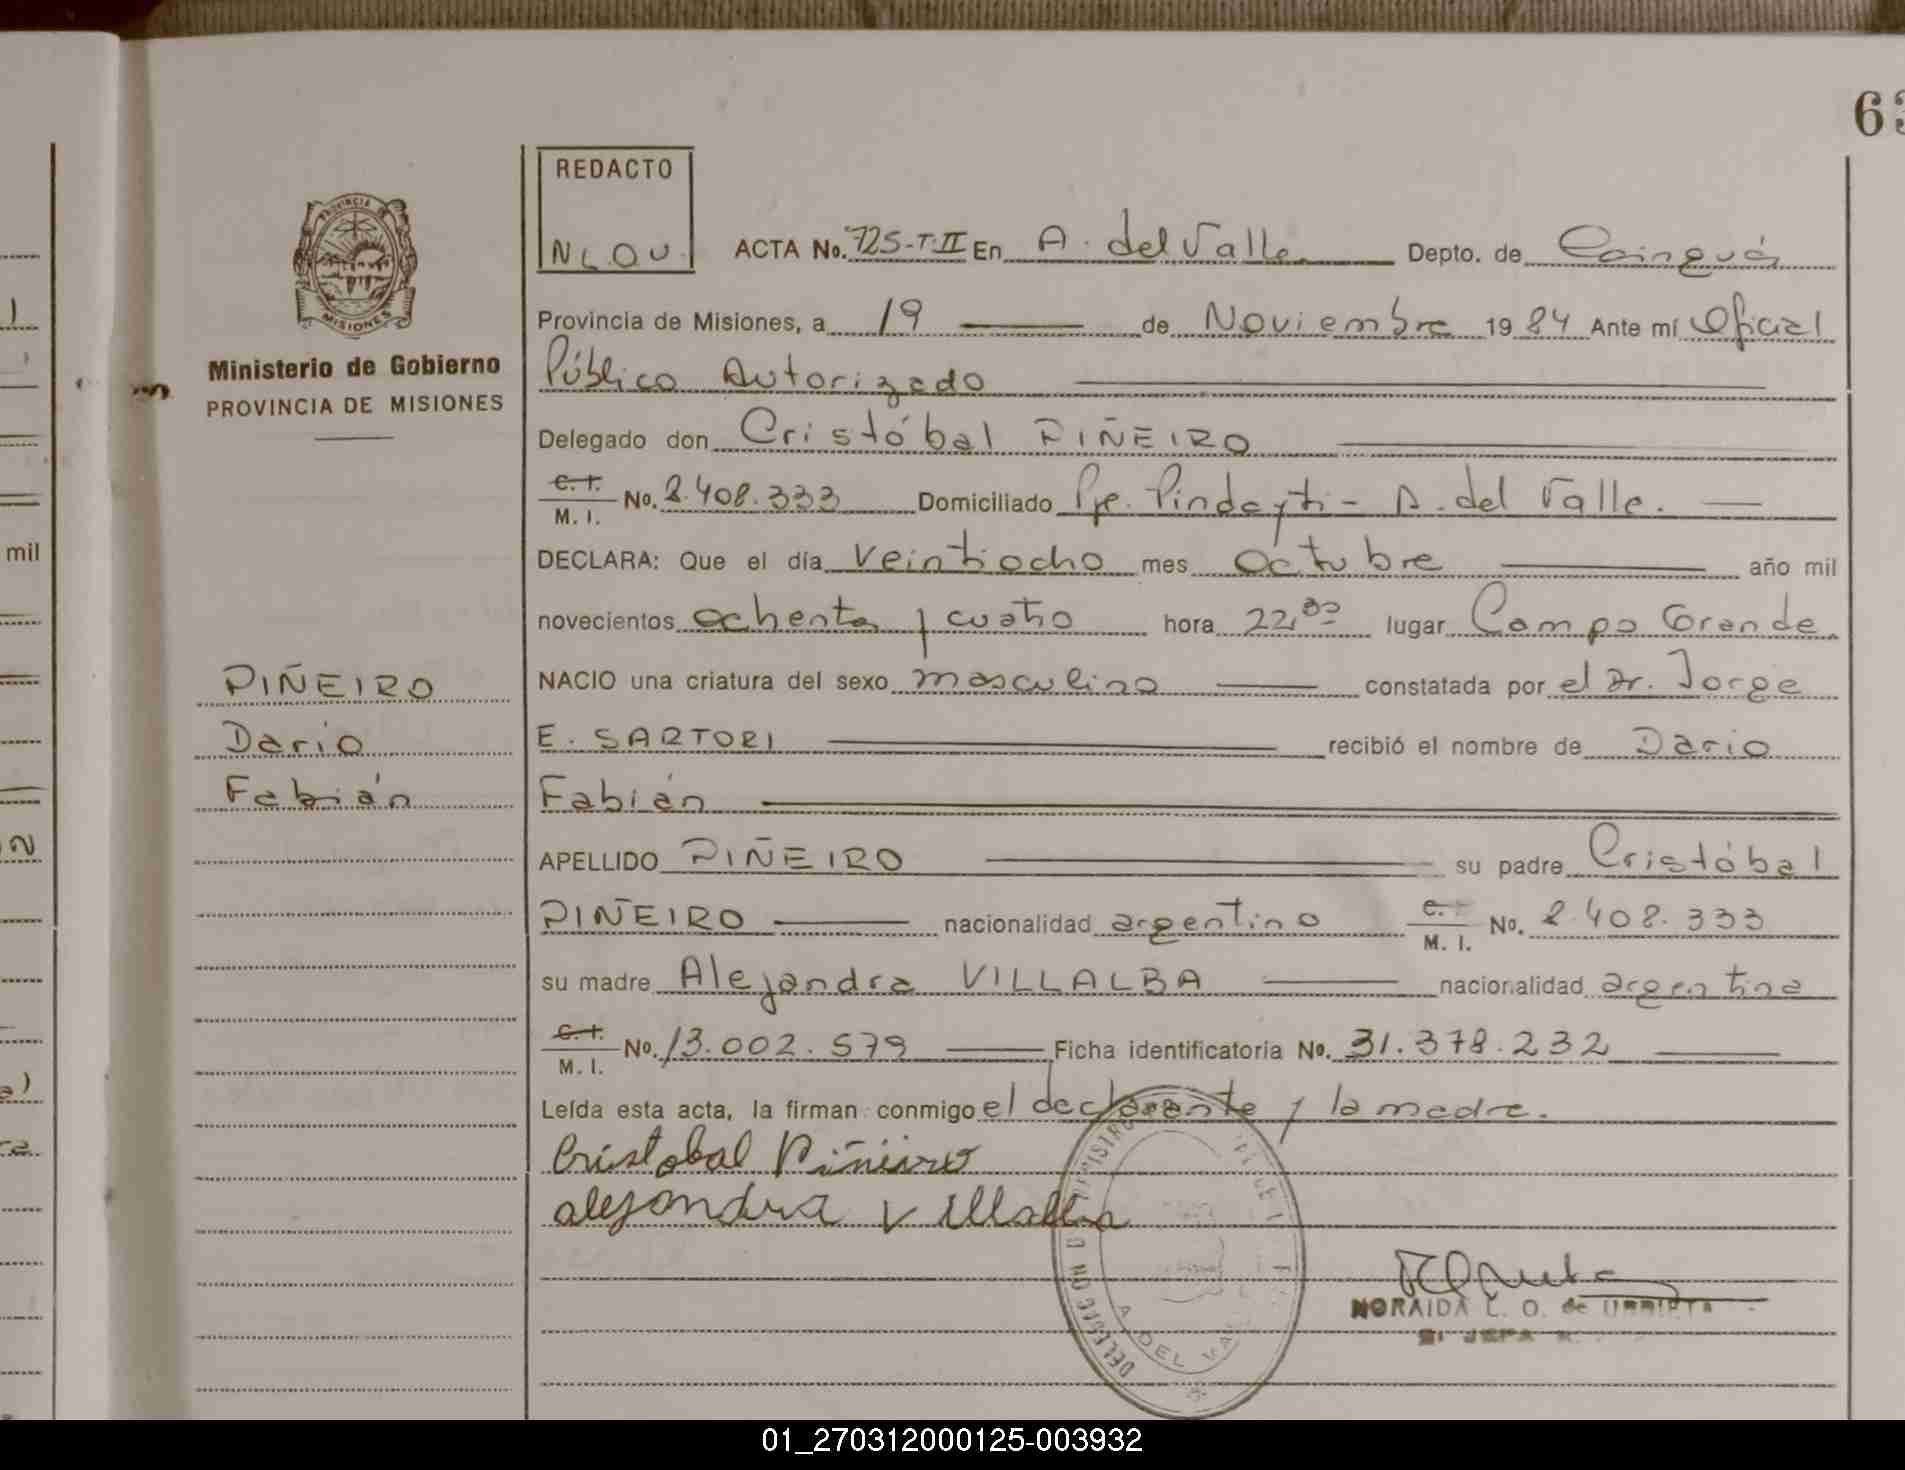 63
REDACTO
N L. O U.
ACTA No. 725-T.II En A. del Valle Depto. de Cainguás
PROVINCIA
MISIONES
Provincia de Misiones, a 19 de Noviembre 1984 Ante mí Oficial
Ministerio de Gobierno
Público Autorizado
PROVINCIA DE MISIONES
Delegado don Cristóbal PIÑEIRO
C. I.
M. I. No. 8.408.333 Domiciliado Pje. Pindayti - A. del Valle.
mil
DECLARA: Que el día veintiocho mes octubre año mil
novecientos ochenta y cuatro hora 22,30 lugar Campo Grande
PIÑEIRO
NACIO una criatura del sexo masculino constatada por el Dr. Jorge
Dario
E. SARTORI recibió el nombre de Dario
Fabián
Fabián
APELLIDO PIÑEIRO su padre Cristóbal
PIÑEIRO nacionalidad argentino C.
M. I. No. 8.408.333
su madre Alejandra VILLALBA nacionalidad argentina
C. I.
M. I. No. 13.002.579 Ficha identificatoria No. 31.378.232
Leída esta acta, la firman conmigo el declarante y la madre.
Cristobal Piñeiro
alejandra Villalba
A DEL VAL
NORAIDA L. O. de URRIETA
01_270312000125-003932